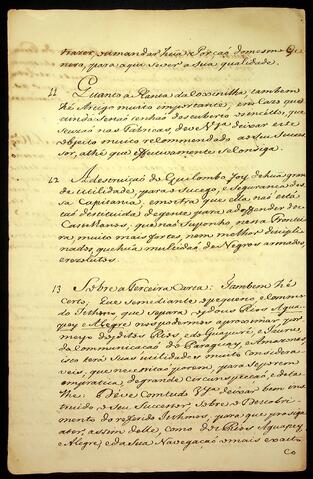 trazer, e a mandar huã Porçaõ do mesmo Ge-
nero, para aqui se ver a sua qualidade.
11 Quanto â Planta da Coxinilha, tambem
hé Artigo muito importante, em cazo que
ainda se naõ tenha descuberto vencillo, que
se uza nas Fabricas, deve V. S.ª deixar este
objeto muito recommendado ao Seu Succes-
sor, athé que effectivamente se Consiga.
12 A destruiçaõ do Quilombo foy de huã gran-
de utilidade, para o Sucego, e Segurança des-
sa Capitania, e mostra que ella naõ está
taõ destituida de gente para a defender dos
Castelhanos, que naõ Suponho, nessa Frontei-
ra, muito mais fortes, nem melhor discipli-
nados, que huã multidaõ de Negros armados,
e rezolutos.
13 Sobre a Terceira Carta: Tambem hé
certo; Que se mediante o pequeno, e Commo-
do Isthmo, que separa os dous Rios Agua-
pey e Alegre; nos podermos aproveitar por
meyo dos ditos Rios do Jauru,
da Communicaçaõ do Paraguay, e Amazonas,
isto terá Suas utilidades muito Considera-
veis, que necessitaõ porem, para se porem
em pratica, de grande circunspecçaõ, e deta-
lhe: Deve Comtudo V. S.ª deixar bem ins-
truido, o Seu Successor, sobre o Descobri-
mento do referido Isthmo, para que prosiga
a ver, assim delle, como dos Rios Aguapey,
e Alegre, e da Sua Navegaçaõ o mais exacto
Co